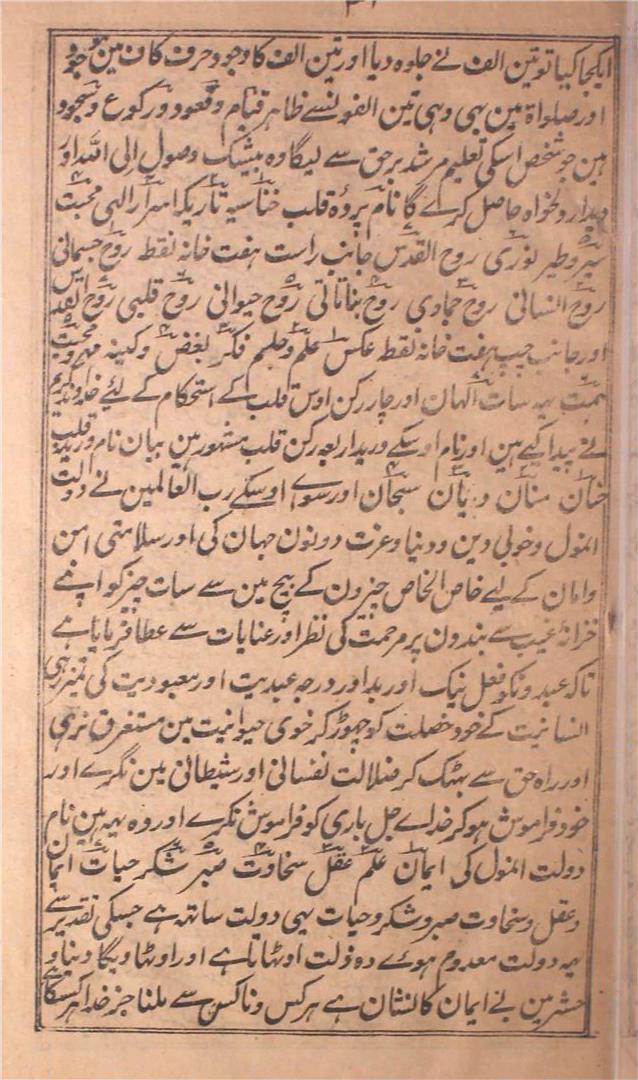 ۳۱
ایکجا کیا تو تین الف نے جلوہ دیا اور تین الف کا وجود حرف کاف مین ہو جود
اور صلواۃ مین بہی وہی تین الفونسے ظاہر قیام و قعود و رکوع و سجود
ہین جو شخص اسکی تعلیم مرشد برحق سے لیگا وہ بیشک وصول الی اللہ اور
دیدار دلخواہ حاصل کرے گا نام پردہ قلب خناسیہ تاریک اسرار الہی محبت
سیر و طیر نوری روح القدس جانب راست ہفت خانہ نقط روح جسمانی
روح انسانی روح جمادی روح بناتاتی روح حیوانی روح قلبی روح القدس
اور جانب چپ ہفت خانہ نقط عکس علم و حلم فکر بغض و کینہ مہر و محبت
ہمت یہہ سات اور چار رکن اوس قلب کے استحکام کے لیئے خداوند کریم
نے پیدا کیے ہین اور نام اوسکے اربعہ رکن قلب مشہور ہین بیان نام قلب
حنان منان دیان سبحان اور سواے اوسکے رب العالمین نے دولت
انمول و خوبی دین و دنیا و عزت دونون جہان کی اور سلامتی امن
و امان کے لیے خاص الخاص چیزون کے بیچ مین سے سات چیز کو اپنے
خزانۂ غیب سے بندون پر مرحمت کی نظر اور عنایات سے عطا فرمایا ہے
تاکہ عبدونکو فعل نیک اور بد اور درجہ عبدیت اور معبودیت کی تمیز رہی
انسانیت کے خو و خصلت کو چہوڑ کر خوی حیوانیت مین مستغرق نرہی
اور راہ حق سے بہٹک کر ضلالت نفسانی اور شیطانی مین نگرے اور
خود فراموش ہو کر خداے جل باری کو فراموش نکرے اور وہ یہہ ہین نام
دولت انمول کی ایمان علم عقل سخاوت صبر شکر حیات ایمان
و عقل و سخاوت صبر و شکر و حیات یہی دولت ساتہہ ہے جسکی تقدیر سے
یہہ دولت معدوم ہوے وہ ذلت اوٹہاتا ہے اور اوٹہاویگا دنیا و
حشر مین بے ایمان کا نشان ہے ہر کس و ناکس سے ملنا جز خدا ہر کسکا